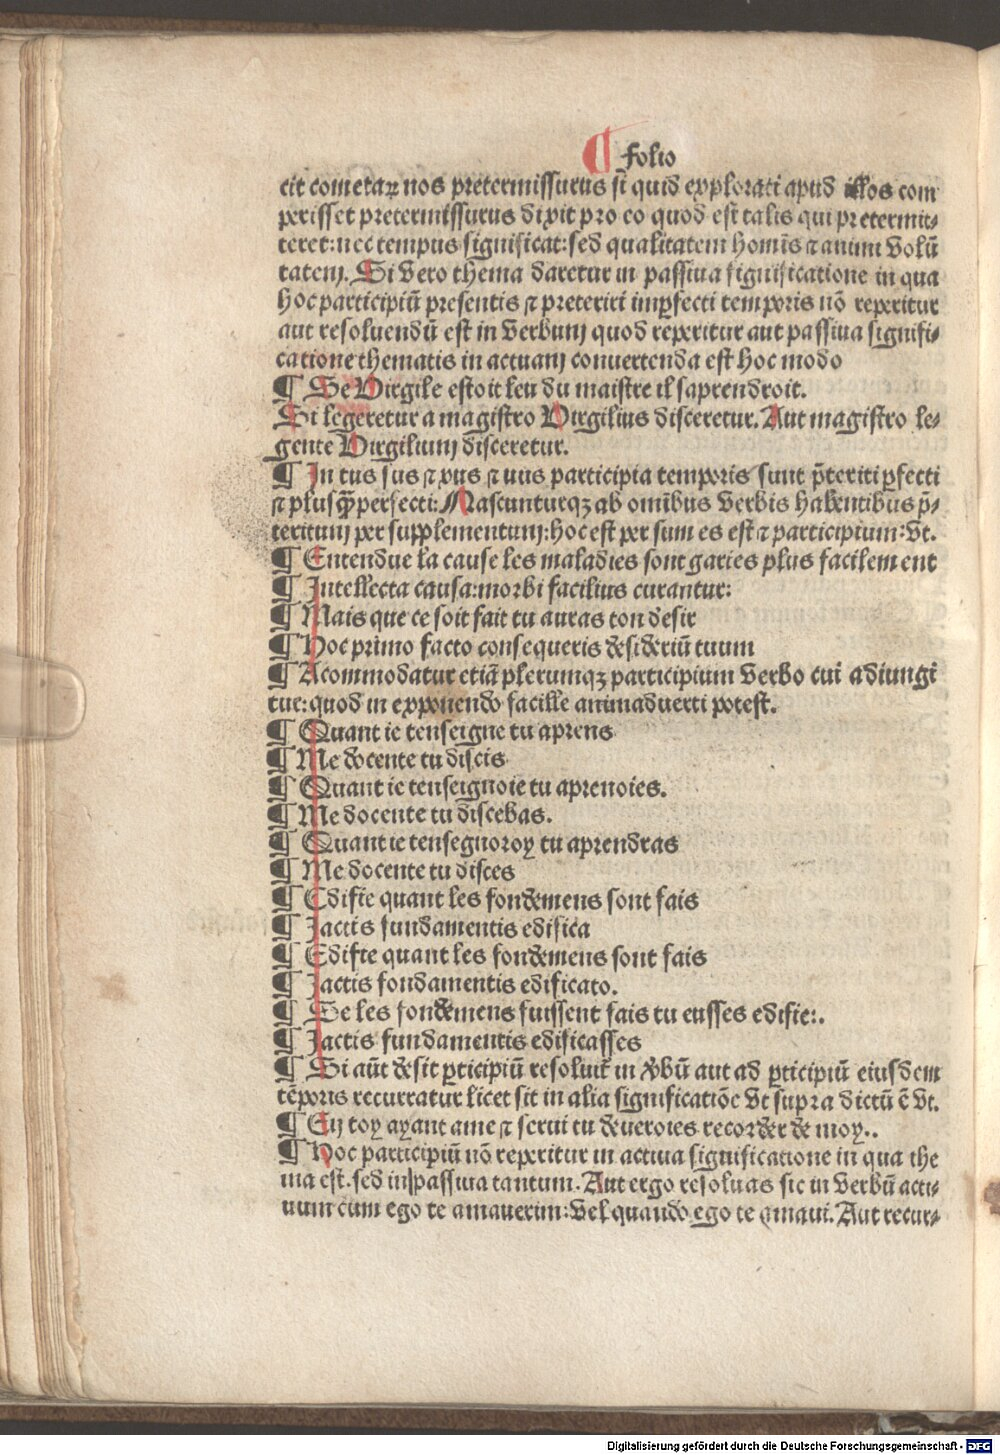 ¶ folio
cit cometaꝝ nos pretermissurus si quid explorati apud illos com
perisset pretermissurus dixit pro eo quod est talis qui pretermit⸗
teret: nec tempus significat: sed qualitatem homīs ⁊ animi volū
tatem. Si vero thema daretur in passiua significatione in qua
hoc participiū presentis ⁊ preteriti imꝑfecti temporis nō reperitur
aut resoluendū est in verbum quod reperitur aut passiua signifi⸗
catione thematis in actuam conuertenda est hoc modo
¶ Se Virgile estoit leu du maistre il saprendroit.
Si legeretur a magistro Virgilius disceretur. Aut magistro le⸗
gente Virgilium disceretur.
¶ In tus sus ⁊ xus ⁊ uus participia temporis sunt p̄teriti ꝑfecti
⁊ plusq̄ꝑperfecti: Nascunturqꝫ ab omībus verbis habentibus p̄⸗
teritum per supplementum: hoc est per sum es est ⁊ participium: vt.
¶ Entendue la cause les maladies sont garies plus facilement
¶ Intellecta causa: morbi facilius curantur:
¶ Mais que ce soit fait tu auras ton desir
¶ Hoc primo facto consequeris desideriū tuum
¶ Acommodatur etiā plerumqꝫ participium verbo cui adiungi
tur: quod in exponendo facille animaduerti potest.
¶ Quant ie tenseigne tu aprens
¶ Me docente tu discis
¶ Quant ie tenseignoie tu aprenoies.
¶ Me docente tu discebas.
¶ Quant ie tensegnoroy tu aprendras
¶ Me docente tu disces
¶ Edifie quant les fondemens sont fais
¶ Jactis fundamentis edifica
¶ Edifie quant les fondemens sont fais
¶ Jactis fondamentis edificato.
¶ Se les fondemens fuissent fais tu eusses edifie:.
¶ Jactis fundamentis edificasses
¶ Si aūt desit ꝑticipiū resoluit̄ in v̄bū aut ad ꝑticipiū eiusdem
tēporis recurratur licet sit in alia significatiōe vt supra dictū ē vt.
¶ En toy ayant ame ⁊ serui tu deueroies recorder de moy..
¶ Hoc participiū nō reperitur in actiua significatione in qua the
ma est. sed in passiua tantum. Aut ergo resoluas sic in verbū acti⸗
uum cum ego te amauerim: vel quando ego te amaui. Aut recur⸗
Digitalisierung gefördert durch die Deutsche Forschungsgemeinschaft - DFG